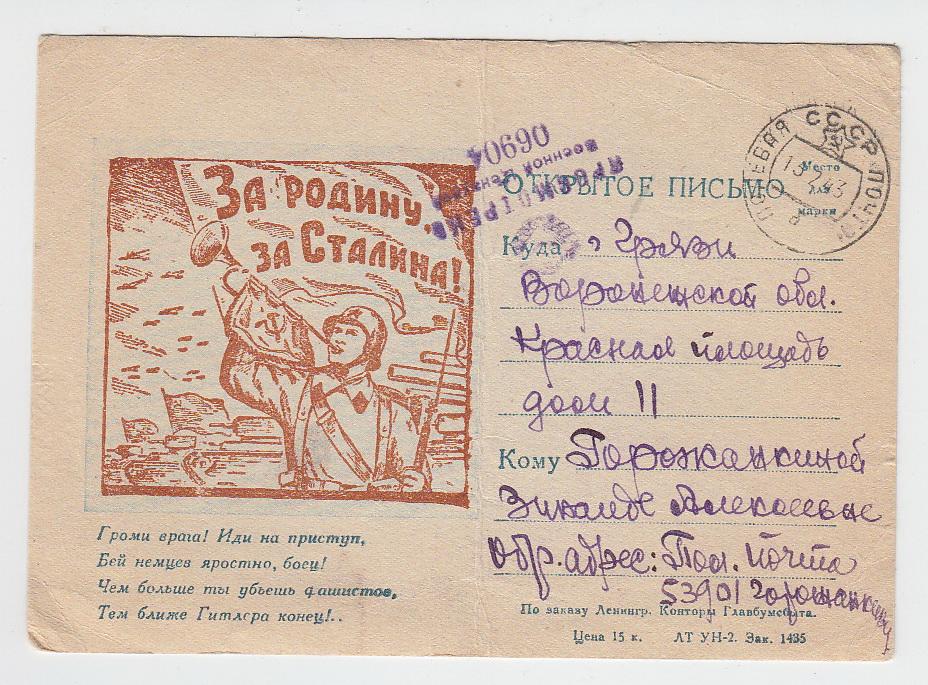 За Родину,
за Сталина!
Громи врага! Иди на приступ,
Бей немцев яростно, боец!
Чем больше ты убьешь фашистов,
Тем ближе Гитлера конец!..
06904
Военной Цензурой
ПОЛЕВАЯ ПОЧТА
СССР
ОТКРЫТОЕ ПИСЬМО
Место
для
марки
Куда г Грязи
Воронежской обл.
Красная площадь
дом 11
Кому Горожанкиной
Зинаиде Алексеевне
Обр. адрес: Пол. Почта
53901 Горожанкину
По заказу Ленингр. Конторы Главбумсбыта.
Цена 15 к. ЛТ УН-2. Зак. 1435